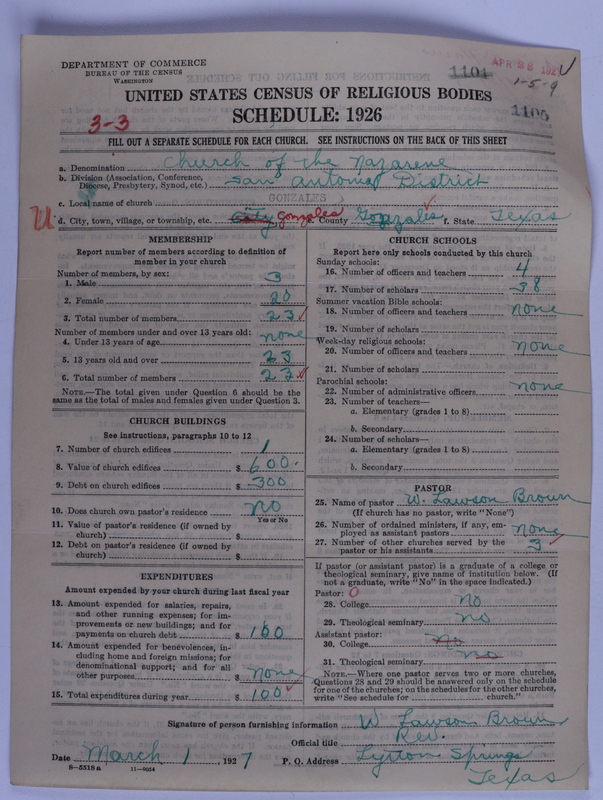 DEPARTMENT OF COMMERCE
BUREAU OF THE CENSUS
WASHINGTON
1104
APR 28 192
1-5-9
UNITED STATES CENSUS OF RELIGIOUS BODIES
1105
SCHEDULE: 1926
3-3
FILL OUT A SEPARATE SCHEDULE FOR EACH CHURCH. SEE INSTRUCTIONS ON THE BACK OF THIS SHEET
a. Denomination Church of the Nazarene
b. Division (Association, Conference, Diocese, Presbytery, Synod, etc.) San Antonio District
c. Local name of church GONZALES
U d. City, town, village, or township, etc. City Gonzales e. County Gonzales f. State Texas
MEMBERSHIP
Report number of members according to definition of
member in your church
Number of members, by sex:
1. Male 3
2. Female 20
3. Total number of members 23
Number of members under and over 13 years old:
4. Under 13 years of age none
5. 13 years old and over 23
6. Total number of members 23
NOTE.—The total given under Question 6 should be the
same as the total of males and females given under Question 3.
CHURCH BUILDINGS
See instructions, paragraphs 10 to 12
7. Number of church edifices 1
8. Value of church edifices $ 600.
9. Debt on church edifices $ 300
10. Does church own pastor's residence No
Yes or No
11. Value of pastor's residence (if owned by
church) $
12. Debt on pastor's residence (if owned by
church) $
EXPENDITURES
Amount expended by your church during last fiscal year
13. Amount expended for salaries, repairs,
and other running expenses; for im-
provements or new buildings; and for
payments on church debt $ 100
14. Amount expended for benevolences, in-
cluding home and foreign missions; for
denominational support; and for all
other purposes $ none
15. Total expenditures during year $ 100
CHURCH SCHOOLS
Report here only schools conducted by this church
Sunday schools:
16. Number of officers and teachers 4
17. Number of scholars 38
Summer vacation Bible schools:
18. Number of officers and teachers none
19. Number of scholars
Week-day religious schools:
20. Number of officers and teachers none
21. Number of scholars
Parochial schools:
22. Number of administrative officers none
23. Number of teachers—
a. Elementary (grades 1 to 8)
b. Secondary
24. Number of scholars—
a. Elementary (grades 1 to 8)
b. Secondary
PASTOR
25. Name of pastor W. Lawson Brown
(If church has no pastor, write "None")
26. Number of ordained ministers, if any, em-
ployed as assistant pastors none
27. Number of other churches served by the
pastor or his assistants 3
If pastor (or assistant pastor) is a graduate of a college or
theological seminary, give name of institution below. (If
not a graduate, write "No" in the space indicated.)
Pastor: 0
28. College No
29. Theological seminary No
Assistant pastor:
30. College No
31. Theological seminary No
NOTE.—Where one pastor serves two or more churches,
Questions 28 and 29 should be answered only on the schedule
for one of the churches; on the schedules for the other churches,
write "See schedule for church."
Signature of person furnishing information W Lawson Brown
Official title Rev.
Date March 1, 1927 P. O. Address Lytton Springs
Texas
8-5518 a 11-9034